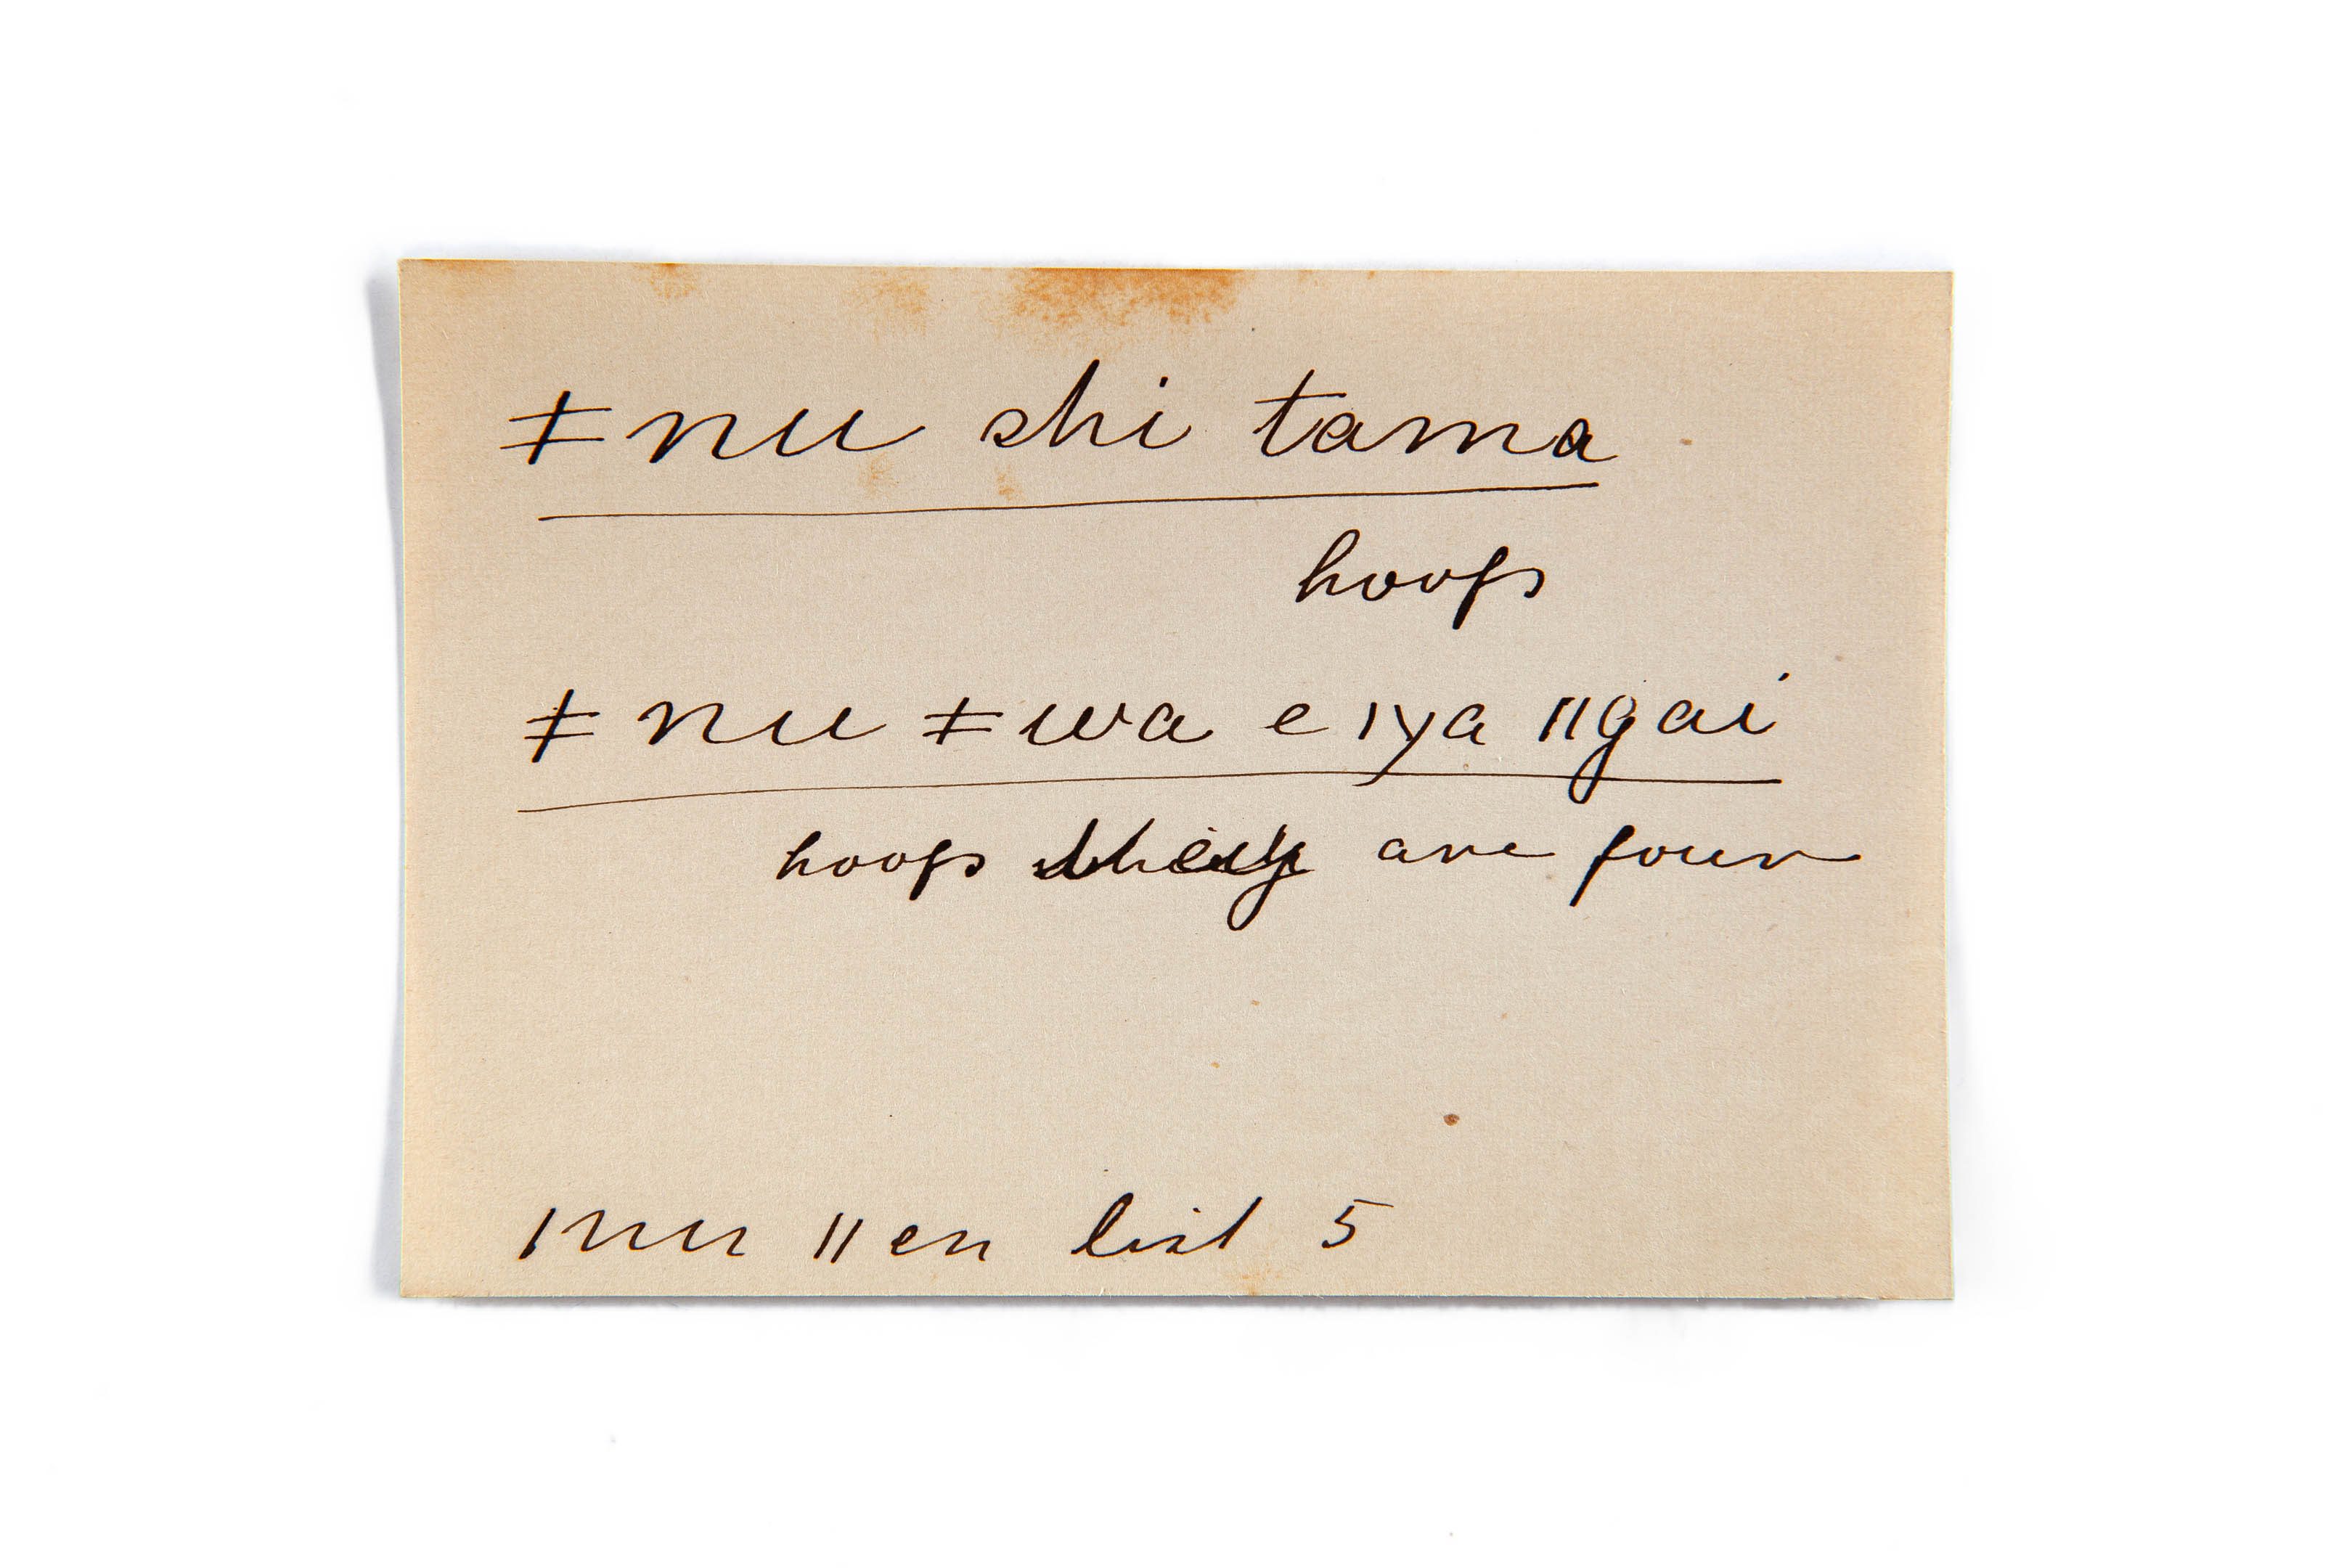 ǂnu shi tama
hoofs
ǂnu ǂwa e ǀya ǁgai
hoofs they are four
ǀnu ǁen list 5